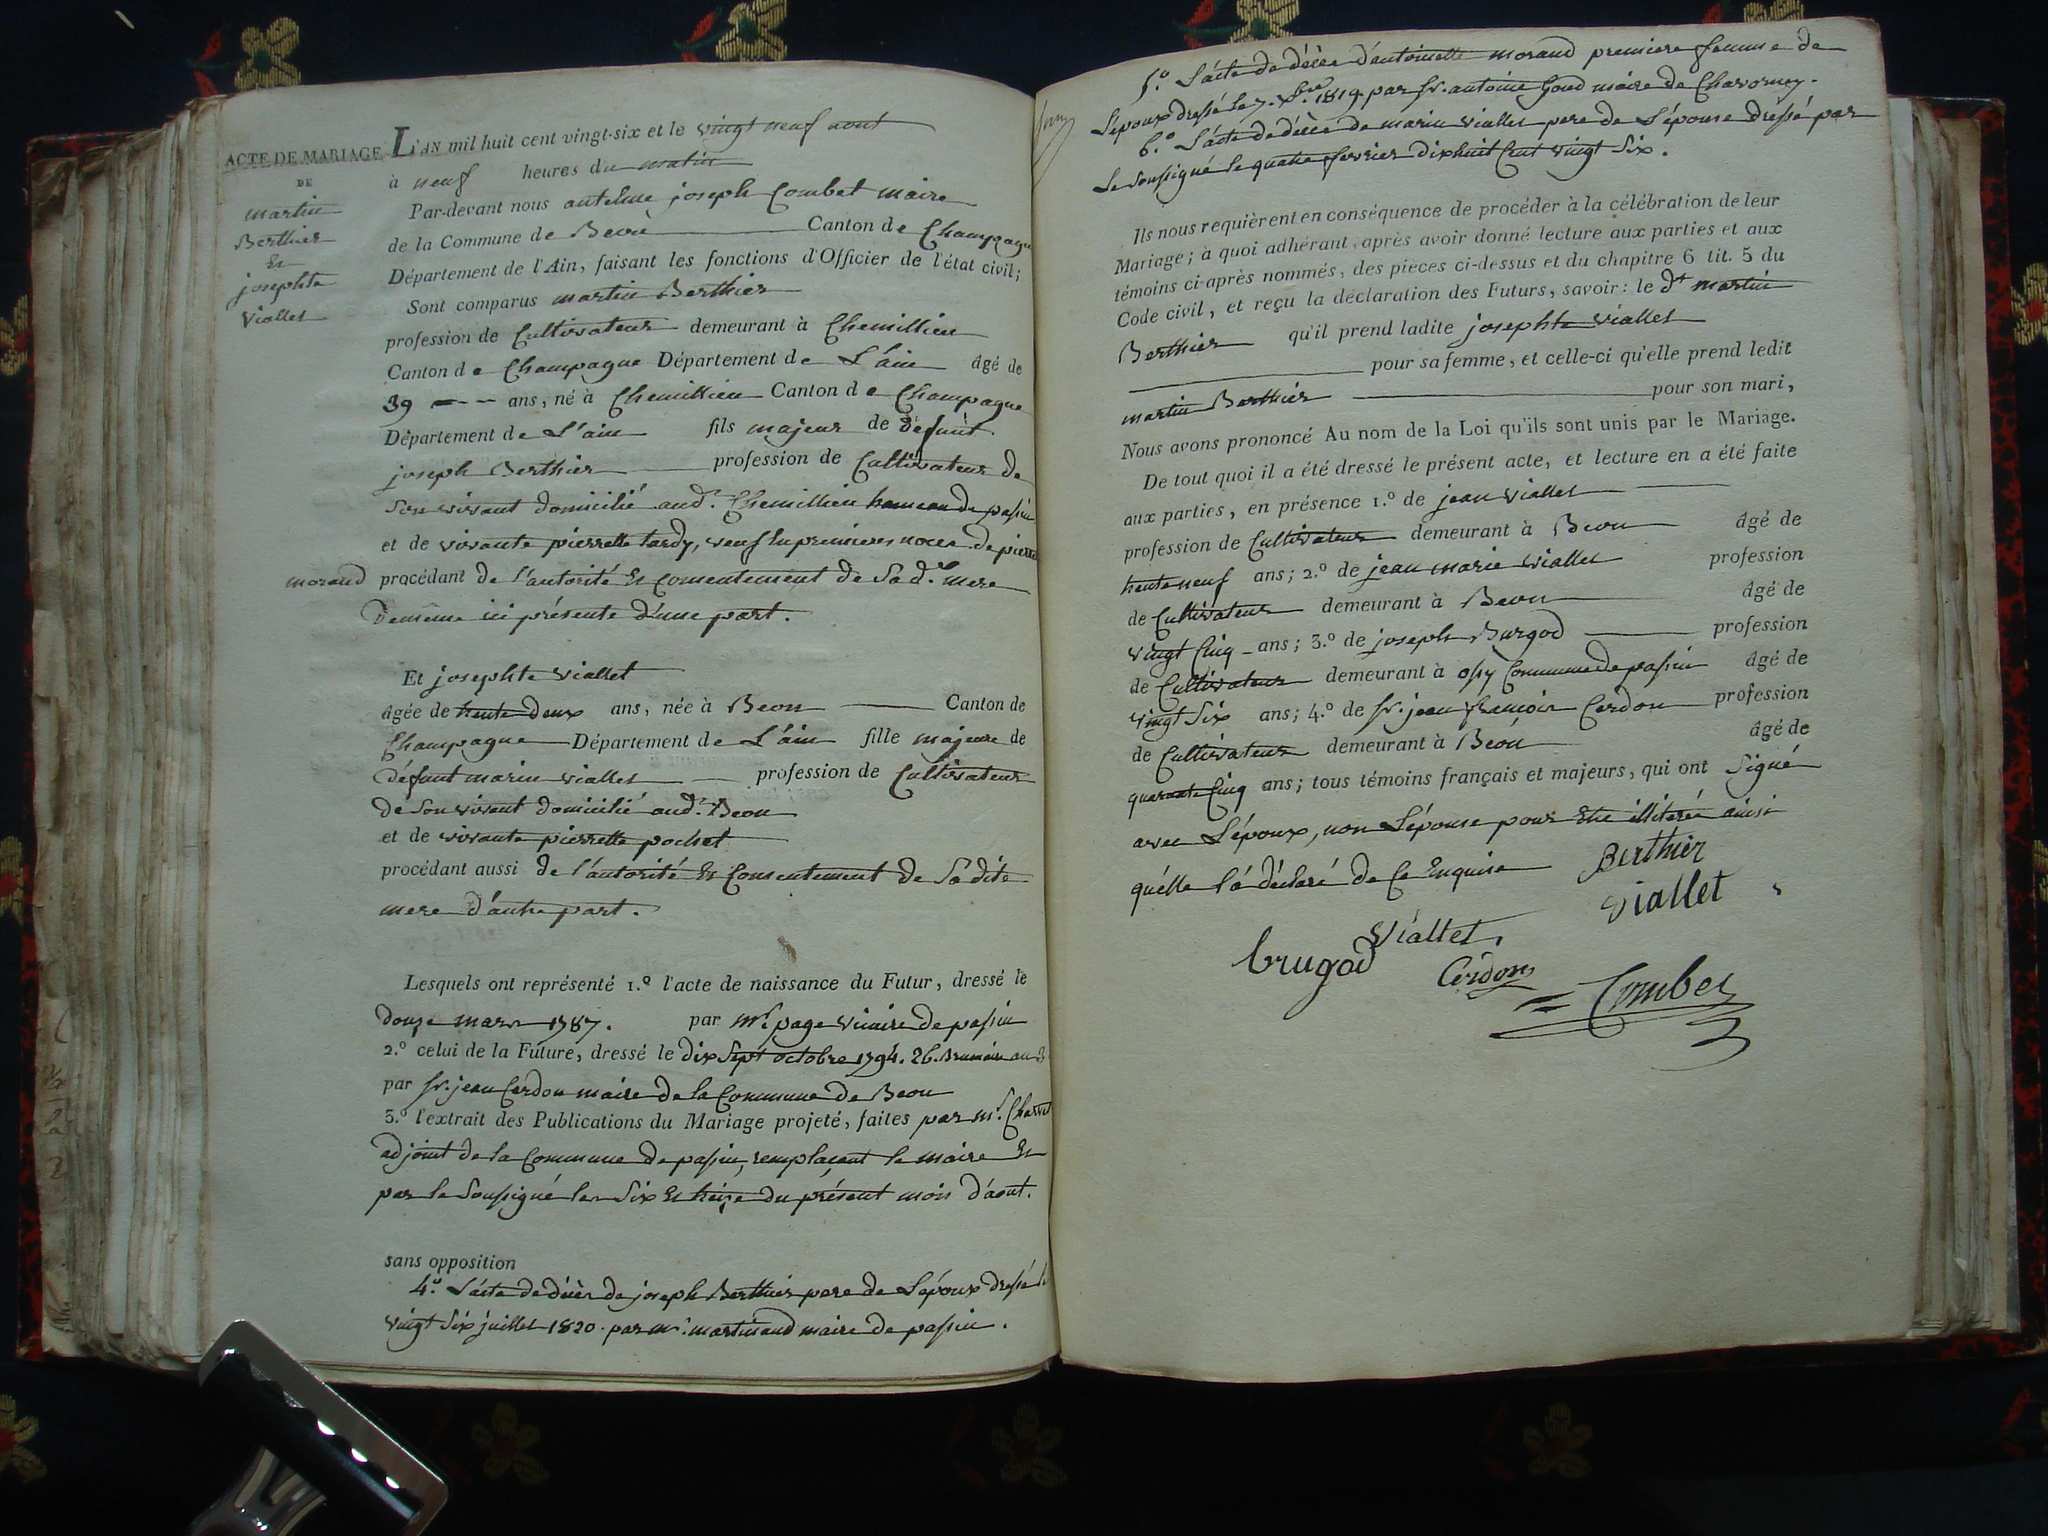 ACTE DE MARIAGE
DE
martin
Berthier
Et
josephte
Viallet
L'AN mil huit cent vingt-six et le vingt neuf aout
à neuf heures du matin
Par-devant nous antelme joseph Combet maire
de la Commune de Beon Canton de Champagne
Département de l'Ain, faisant les fonctions d'Officier de l'état civil;
Sont comparus martin Berthier
profession de Cultivateur demeurant à Chemillieu
Canton de Champagne Département de L'ain âgé de
39 ans, né à Chemillieu Canton de Champagne
Département de L'ain fils majeur de défunt
joseph Berthier profession de Cultivateur de
Son vivant domicilié aud. Chemillieu hameau de passin
et de vivante pierrette tardy, veuf En premieres noces de pierrette
morand procédant de l'autorité Et Consentement de Sa de. mere
Demême ici présente d'une part.
Et josephte viallet
âgée de trente deux ans, née à Beon Canton de
Champagne Département de L'ain fille majeure de
défunt marin viallet profession de Cultivateur
de Son vivant domicilié aud. Beon
et de vivante pierrette pochet
procédant aussi de l'autorité Et Consentement de Sadite
mere d'autre part.
Lesquels ont représenté 1.º l'acte de naissance du Futur, dressé le
douze mars 1787. par mr. page vicaire de passin
2.º celui de la Future, dressé le dix Sept octobre 1794. 26. Brumaire an 3
par Sr. jean Cerdon maire de la Commune de Beon
3.º l'extrait des Publications du Mariage projeté, faites par mr. Charvet
adjoint de la Commune de passin, remplaçant le maire Et
par le Soussigné les Six Et treize du présent mois d'aout.
sans opposition
4.º L'acte de décès de joseph Berthier pere de L'époux dressé le
vingt Six juillet 1820. par mr. martinand maire de passin.
5.º L'acte de décès d'antoinette morand premiere femme de
L'epoux dressé le 7. Xbre 1819. par Sr. antoine Goud maire de Chavornay.
6.º L'acte de décès de marin viallet pere de L'épouse dressé par
Le Soussigné le quatre fevrier dix huit Cent vingt Six.
Ils nous requièrent en conséquence de procéder à la célébration de leur
Mariage; à quoi adhérant, après avoir donné lecture aux parties et aux
témoins ci-après nommés, des pièces ci-dessus et du chapitre 6 tit. 5 du
Code civil, et reçu la déclaration des Futurs, savoir: le dt. martin
Berthier qu'il prend ladite josephte viallet
pour sa femme, et celle-ci qu'elle prend ledit
martin Berthier pour son mari,
Nous avons prononcé Au nom de la Loi qu'ils sont unis par le Mariage.
De tout quoi il a été dressé le présent acte, et lecture en a été faite
aux parties, en présence 1.º de jean viallet
profession de Cultivateur demeurant à Beon âgé de
trente neuf ans; 2.º de jean marie viallet profession
de Cultivateur demeurant à Beon âgé de
vingt Cinq ans; 3.º de joseph Burgod profession
de Cultivateur demeurant à ossy Commune de passin âgé de
vingt Six ans; 4.º de Sr. jean françois Cerdon profession
de Cultivateur demeurant à Béon âgé de
quarante Cinq ans; tous témoins français et majeurs, qui ont Signé
avec L'époux, non L'épouse pour Etre illiterée ainsi
qu'elle l'a déclaré de Ce Enquise Berthier
viallet
Viallet.
brugod
Cerdon
Combet